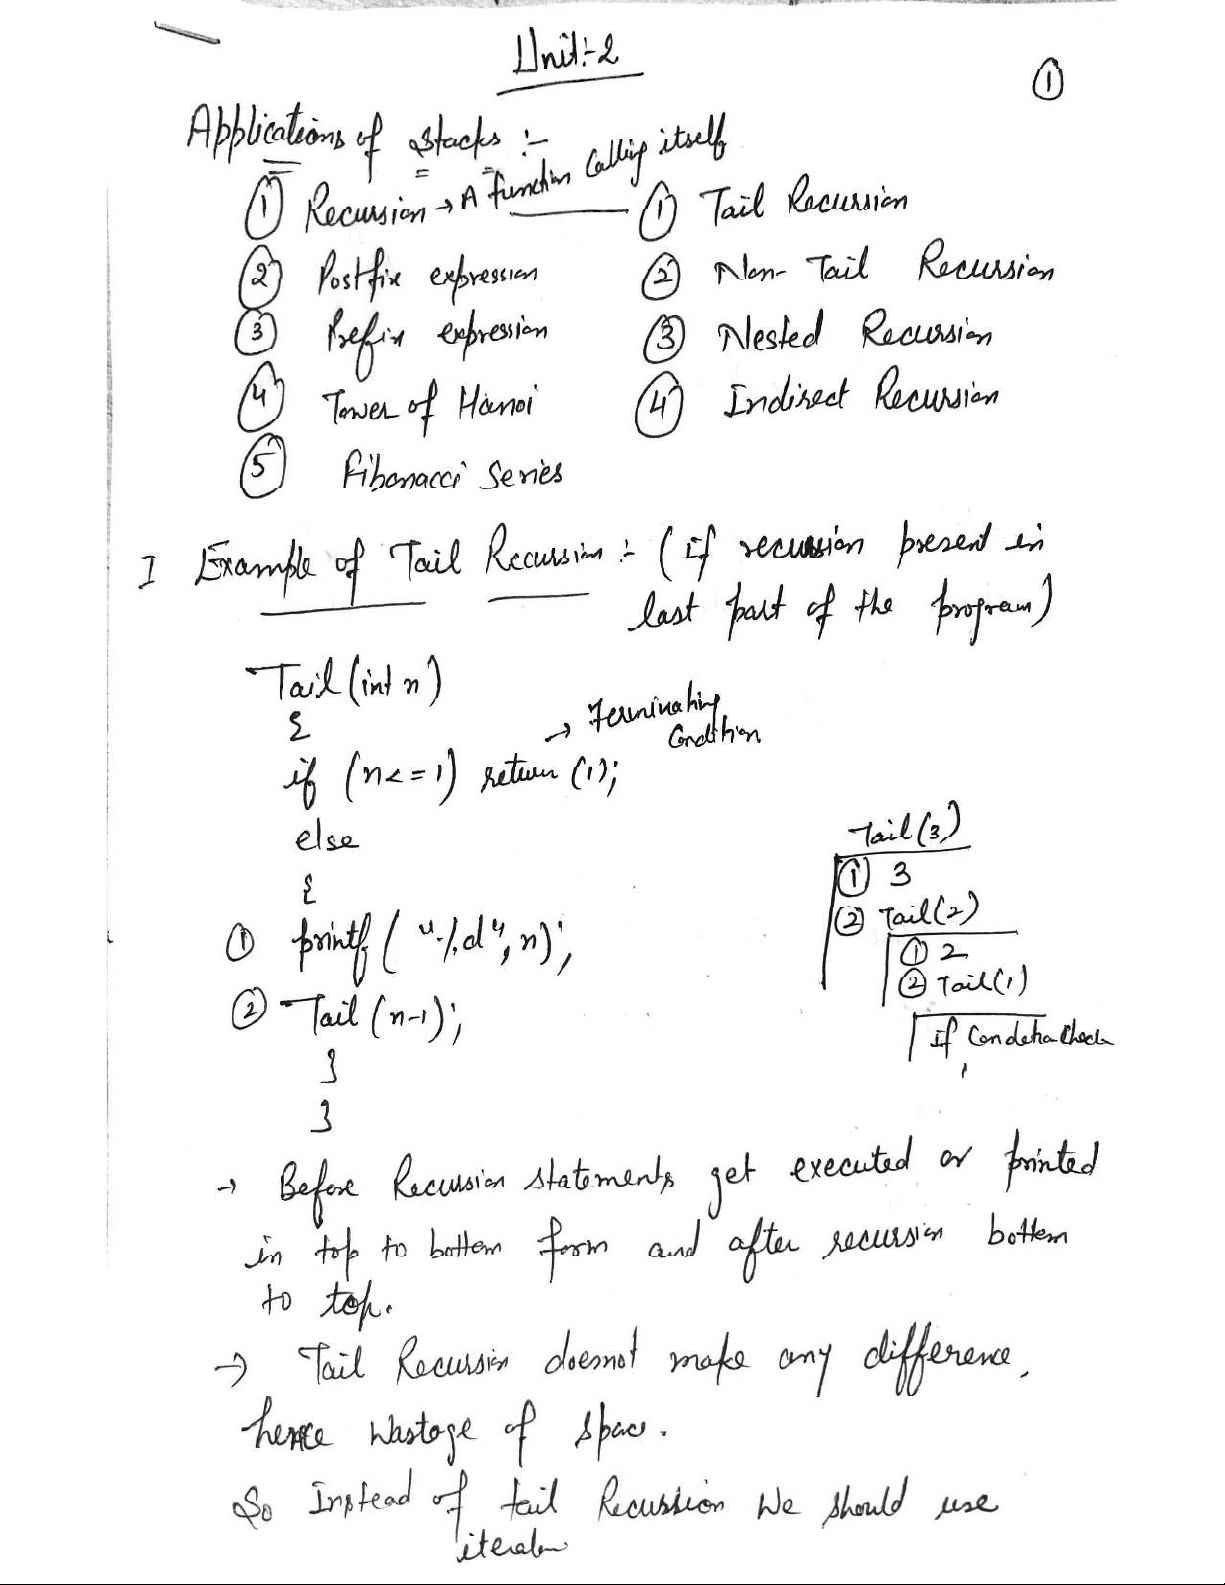 Unit:-2
①
Applications of Stacks :-
① Recursion → A function Calling itself
② Postfix expression
③ Prefix expression
④ Tower of Hanoi
⑤ Fibonacci Series
① Tail Recursion
② Non-Tail Recursion
③ Nested Recursion
④ Indirect Recursion
I Example of Tail Recursion :- (if recursion present in
last part of the program)
Tail (int n)
{
→ Terminating
Condition
if (n<=1) return (1);
else
{
① printf ("%d", n);
② Tail (n-1);
}
}
Tail (3)
① 3
② Tail(2)
① 2
② Tail(1)
if Condition Check
→ Before Recursion statements get executed or printed
in top to bottom form and after recursion bottom
to top.
→ Tail Recursion doesnot make any difference,
hence Wastage of space.
So Instead of tail Recursion We should use
iteration